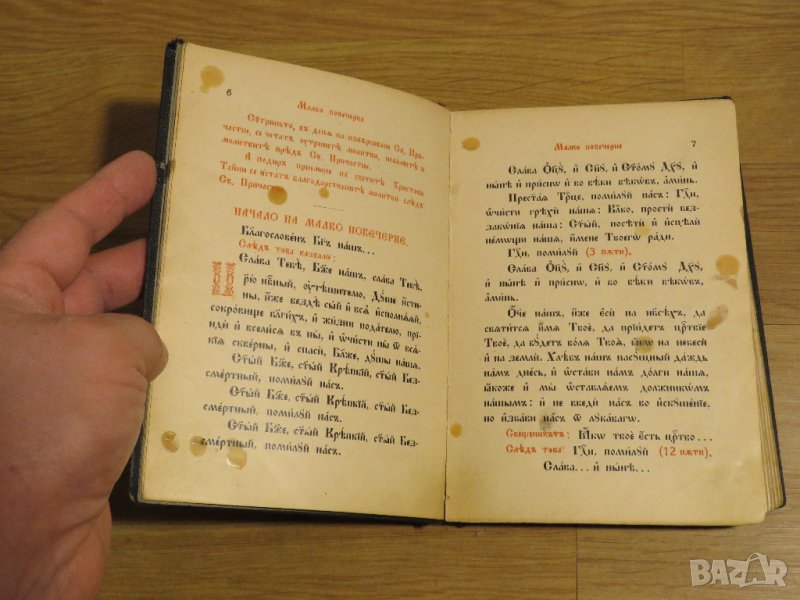 6
Малко повечерие
Сѹтриньта, въ деня на извършвани Св. При-
частїи, се четатъ ѹтринните молитви, псалмите и
молитвите прѣдъ Св. Причастїи.
А подиръ приемани на светите Христови
Тайни се четатъ благодарственните молитви слѣдъ
Св. Причастїи.
НАЧАЛО НА МАЛКО ПОВЕЧЕРИЕ.
Благословенъ Бг҃ъ нашъ...
Слѣдъ това казвами:
Слава Тебѣ, Бж҃е нашъ, слава Тебѣ.
Цр҃ю нб҃ный, ѹтѣшителю, Дш҃е исти-
ны, иже вездѣ сый и всѧ исполнѧѧй,
сокровище благихъ, и жизни подателю, прїи-
ди и вселисѧ въ ны, и ѡчисти ны ѿ всѧ-
кїѧ скверны, и спаси, Бл҃же, дш҃ы нашѧ.
Ст҃ый Бж҃е, ст҃ый Крѣпкїй, ст҃ый Без-
смертный, помилѹй насъ.
Ст҃ый Бж҃е, ст҃ый Крѣпкїй, ст҃ый Без-
смертный, помилѹй насъ.
Ст҃ый Бж҃е, ст҃ый Крѣпкїй, ст҃ый Без-
смертный, помилѹй насъ.
Малко повечерие
7
Слава Оц҃ѹ, и Сн҃ѹ, и Ст҃омѹ Дх҃ѹ, и
нынѣ и приснѡ и во вѣки вѣкѡвъ, аминь.
Прест҃аѧ Трц҃е, помилѹй насъ: Гд҃и,
ѡчисти грѣхи нашѧ: Вл҃ко, прости без-
закѡнїѧ нашѧ: Ст҃ый, посѣти и исцѣли
немѡщи нашѧ, имене Твоегѡ ради.
Гд҃и, помилѹй (3 пѫти).
Слава Оц҃ѹ, и Сн҃ѹ, и Ст҃омѹ Дх҃ѹ, и
нынѣ и приснѡ, и во вѣки вѣкѡвъ,
аминь.
Оч҃е нашъ, иже еси на нб҃сѣхъ, да
свѧтитсѧ имѧ Твое, да прїидетъ црт҃вїе
Твое, да бѹдетъ волѧ Твоѧ, ꙗкѡ на небеси
и на земли. Хлѣбъ нашъ насѹщный даждь
намъ днесь, и ѡстави намъ долги нашѧ,
ꙗкоже и мы ѡставлѧемъ должникѡмъ
нашымъ: и не введи насъ во искѹшенїе,
но избави насъ ѿ лѹкавагѡ.
Свещеникътъ: Ꙗкѡ твое есть црт҃во...
Слѣдъ това: Гд҃и, помилѹй (12 пѫти).
Слава... и нынѣ...
BAZAR